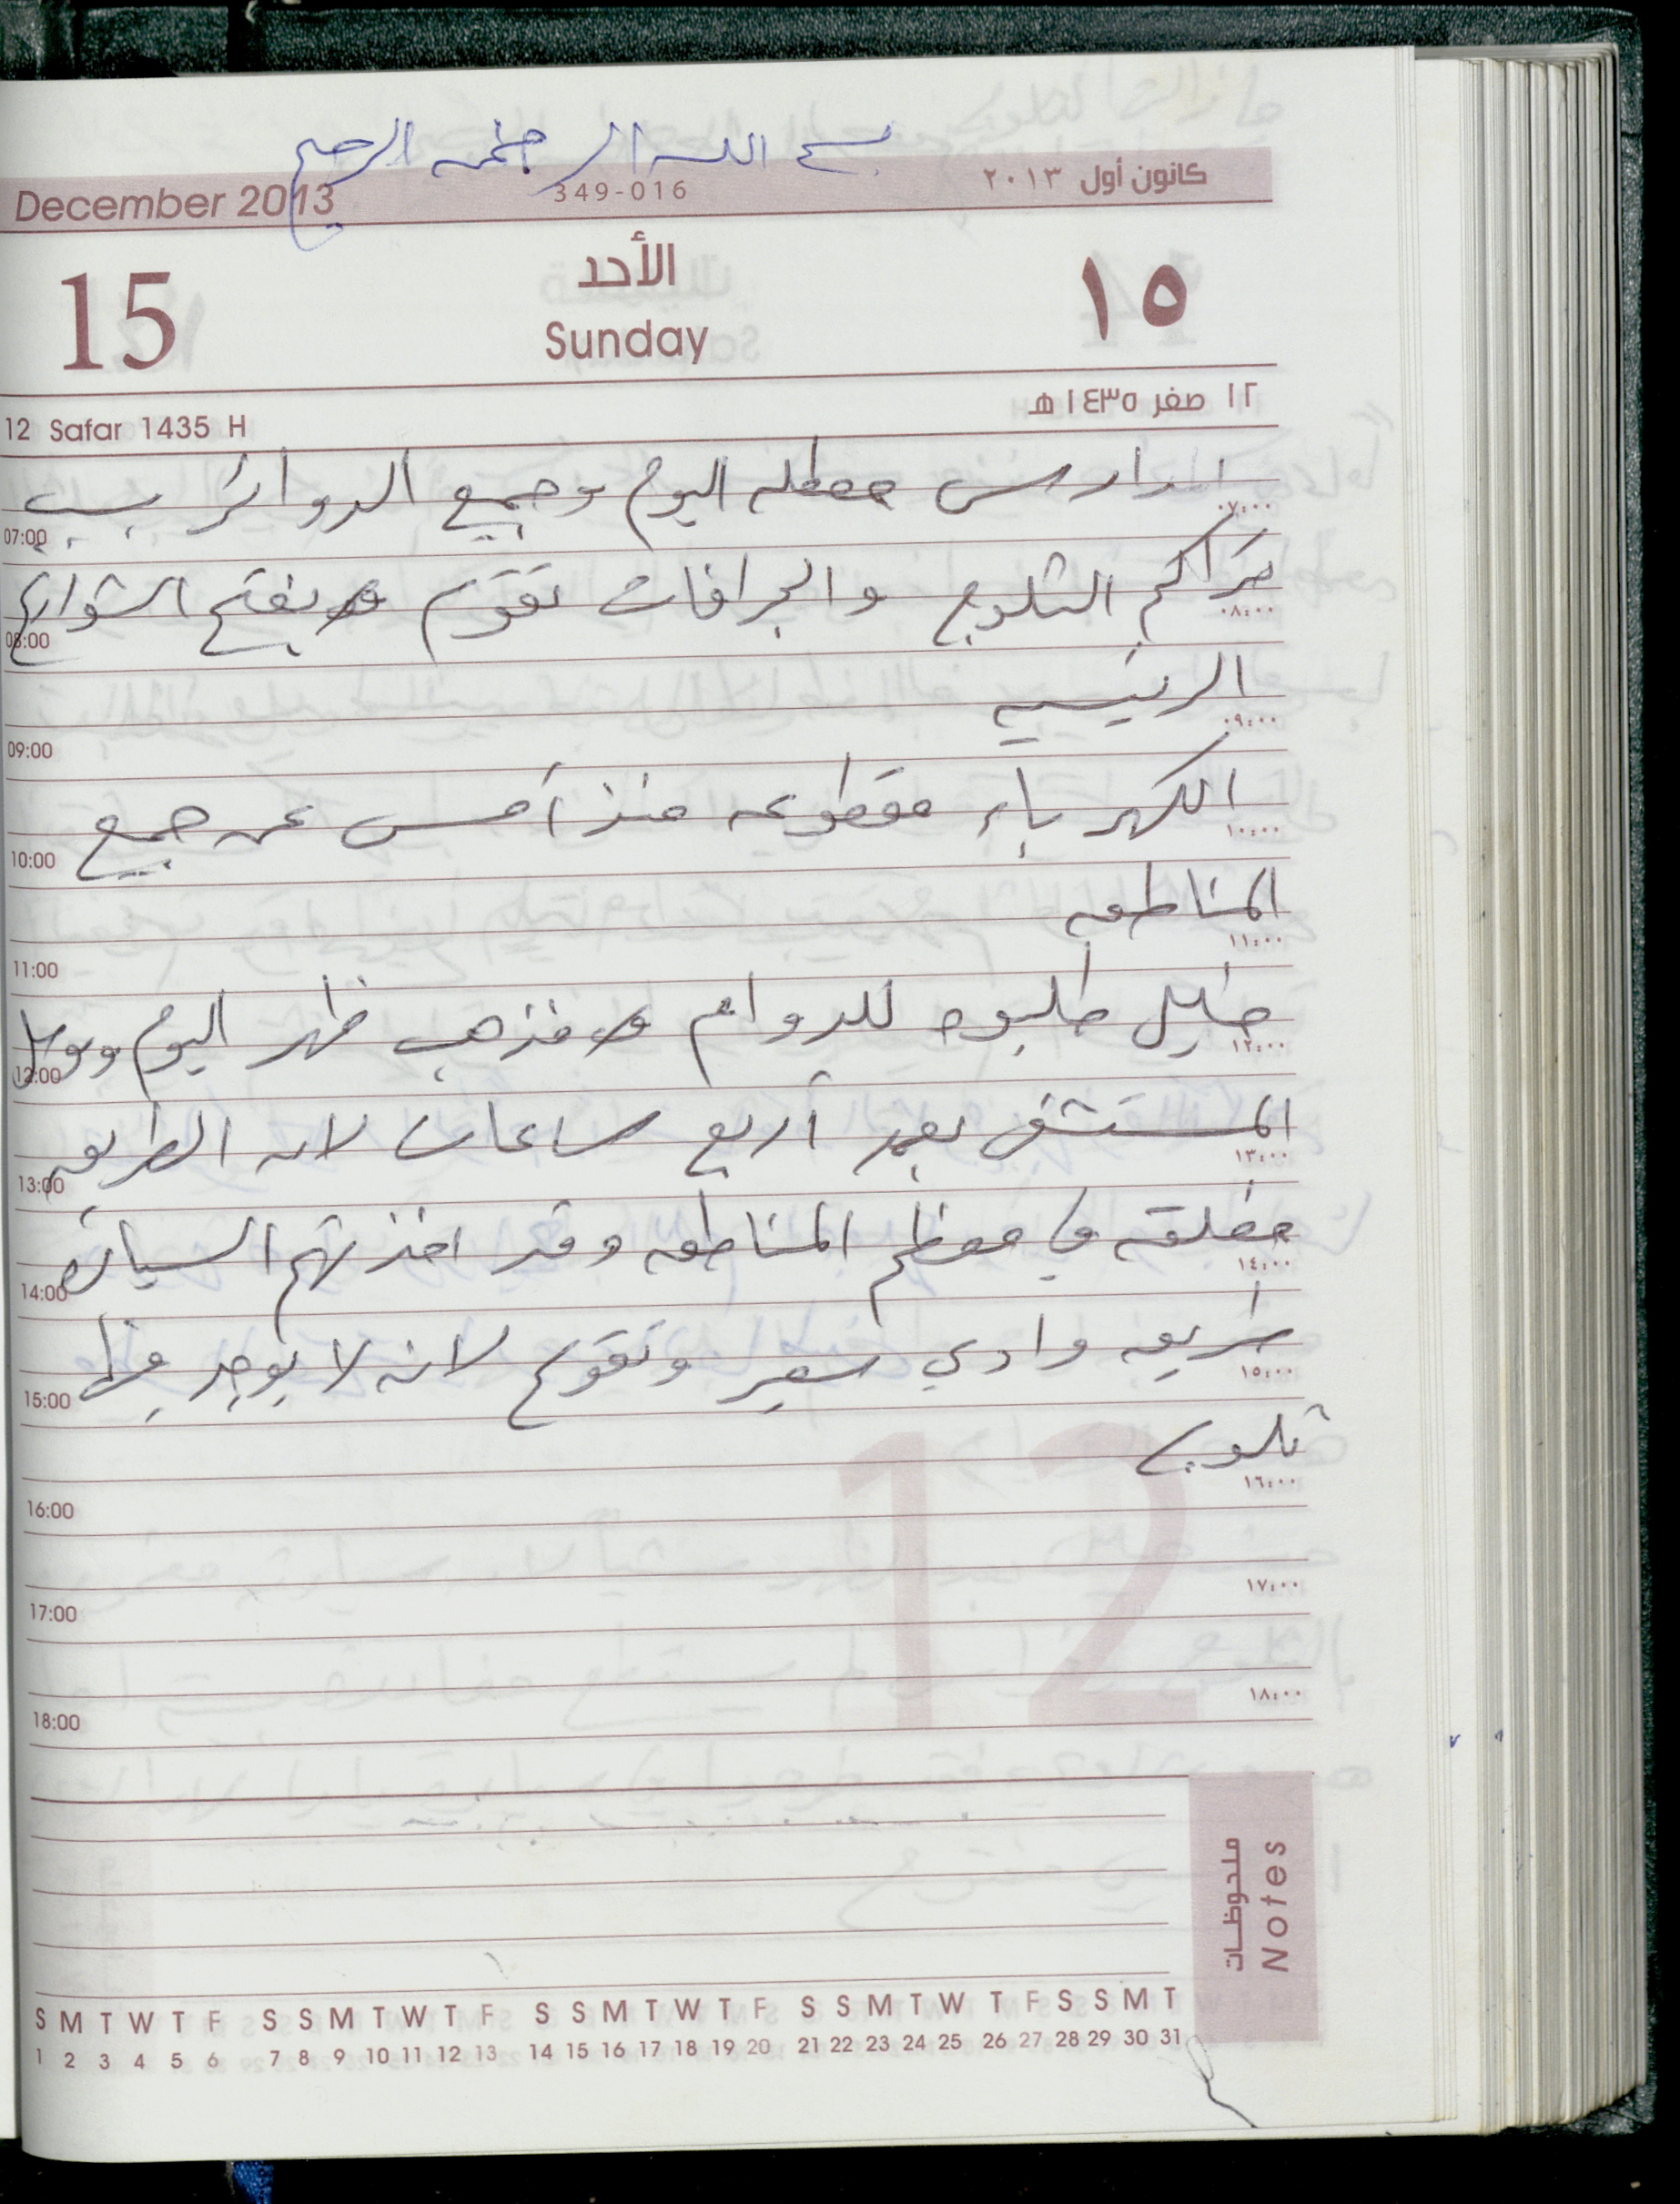 بسم الله الرحمن الرحيم
December 2013 349-016 كانون أول ٢٠١٣
15 الأحد ١٥
Sunday
12 Safar 1435 H ١٢ صفر ١٤٣٥ هـ
المدارس معطله اليوم وجميع الدوائر بسبب
07:00 ٠٧:٠٠
تراكم الثلوج والجرافات تقوم بفتح الشوارع
08:00 ٠٨:٠٠
الرئيسيه
09:00 ٠٩:٠٠
الكهرباء مقطوعه منذ أمس عن جميع
10:00 ١٠:٠٠
المناطق
11:00 ١١:٠٠
خليل طلبوه للدوام فذهب ظهر اليوم ووصل
12:00 ١٢:٠٠
المستشفى بعد أربع ساعات لان الطريق
13:00 ١٣:٠٠
مغلقه في معظم المناطق وقد اخذتهم السيارة
14:00 ١٤:٠٠
طريق وادي سعير وتقوع لانه لا يوجد فيها
15:00 ١٥:٠٠
ثلوج
16:00 ١٦:٠٠
17:00 ١٧:٠٠
18:00 ١٨:٠٠
12
ملحوظات
Notes
S M T W T F S S M T W T F S S M T W T F S S M T W T F S S M T
1 2 3 4 5 6 7 8 9 10 11 12 13 14 15 16 17 18 19 20 21 22 23 24 25 26 27 28 29 30 31